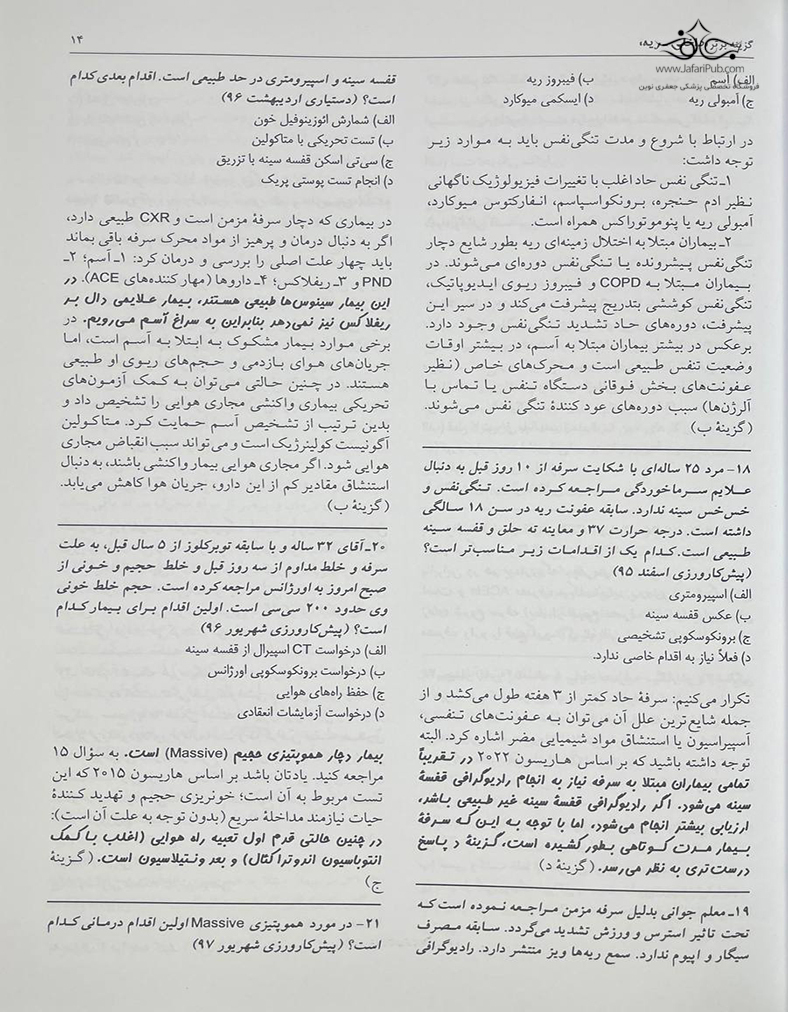 گزینه برتر داخلی ریه،
۱۴
www.JafariPub.com
فروشگاه تخصصی پزشکی جعفری نوین
الف) آسم
ب) فیبروز ریه
ج) آمبولی ریه
د) ایسکمی میوکارد
در ارتباط با شروع و مدت تنگی‌نفس باید به موارد زیر
توجه داشت:
۱ـ تنگی نفس حاد اغلب با تغییرات فیزیولوژیک ناگهانی
نظیر ادم حنجره، برونکواسپاسم، انفارکتوس میوکارد،
آمبولی ریه یا پنوموتوراکس همراه است.
۲ـ بیماران مبتلا به اختلال زمینه‌ای ریه بطور شایع دچار
تنگی‌نفس پیشرونده یا تنگی‌نفس دوره‌ای می‌شوند. در
بیماران مبتلا به COPD و فیبروز ریوی ایدیوپاتیک،
تنگی‌نفس کوششی بتدریج پیشرفت می‌کند و در سیر این
پیشرفت، دوره‌های حاد تشدید تنگی‌نفس وجود دارد.
برعکس در بیشتر بیماران مبتلا به آسم، در بیشتر اوقات
وضعیت تنفس طبیعی است و محرک‌های خاص (نظیر
عفونت‌های بخش فوقانی دستگاه تنفس یا تماس با
آلرژن‌ها) سبب دوره‌های عود کنندهٔ تنگی نفس می‌شوند.
(گزینهٔ ب)
۱۸– مرد ۲۵ ساله‌ای با شکایت سرفه از ۱۰ روز قبل به دنبال
علایم سرماخوردگی مراجعه کرده است. تنگی‌نفس و
خس‌خس سینه ندارد. سابقه عفونت ریه در سن ۱۸ سالگی
داشته است. درجه حرارت ۳۷ و معاینه ته حلق و قفسه سینه
طبیعی است. کدام یک از اقدامات زیر مناسب‌تر است؟
(پیش‌کارورزی اسفند ۹۵)
الف) اسپیرومتری
ب) عکس قفسه سینه
ج) برونکوسکوپی تشخیصی
د) فعلاً نیاز به اقدام خاصی ندارد.
تکرار می‌کنیم: سرفهٔ حاد کمتر از ۳ هفته طول می‌کشد و از
جمله شایع‌ترین علل آن می‌توان به عفونت‌های تنفسی،
آسپیراسیون یا استنشاق مواد شیمیایی مضر اشاره کرد. البته
توجه داشته باشید که بر اساس هاریسون ۲۰۲۲ در تقریباً
تمامی بیماران مبتلا به سرفه نیاز به انجام رادیوگرافی قفسهٔ
سینه می‌شود. اگر رادیوگرافی قفسهٔ سینه غیر طبیعی باشد،
ارزیابی بیشتر انجام می‌شود، اما با توجه به این که سرفهٔ
بیمار مدت کوتاهی بطور کشیده است، گزینهٔ د پاسخ
درست‌تری به نظر می‌رسد. (گزینهٔ د)
۱۹– معلم جوانی بدلیل سرفه مزمن مراجعه نموده است که
تحت تاثیر استرس و ورزش تشدید می‌گردد. سابقه مصرف
سیگار و اپیوم ندارد. سمع ریه‌ها ویز منتشر دارد. رادیوگرافی
قفسه سینه و اسپیرومتری در حد طبیعی است. اقدام بعدی کدام
است؟ (دستیاری اردیبهشت ۹۶)
الف) شمارش ائوزینوفیل خون
ب) تست تحریکی با متاکولین
ج) سی‌تی اسکن قفسه سینه با تزریق
د) انجام تست پوستی پریک
در بیماری که دچار سرفهٔ مزمن است و CXR طبیعی دارد،
اگر به دنبال درمان و پرهیز از مواد محرک سرفه باقی بماند
باید چهار علت اصلی را بررسی و درمان کرد: ۱ـ آسم؛ ۲ـ
PND و ۳ـ ریفلاکس؛ ۴ـ داروها (مهار کننده‌های ACE). در
این بیمار سینوس‌ها طبیعی هستند، بیمار علایمی دال بر
ریفلاکس نیز نمی‌دهد بنابراین به سراغ آسم می‌رویم. در
برخی موارد بیمار مشکوک به ابتلا به آسم است، اما
جریان‌های هوای بازدمی و حجم‌های ریوی او طبیعی
هستند. در چنین حالتی می‌توان به کمک آزمون‌های
تحریکی بیماری واکنشی مجاری هوایی را تشخیص داد و
بدین ترتیب از تشخیص آسم حمایت کرد. متاکولین
آگونیست کولینرژیک است و می‌تواند سبب انقباض مجاری
هوایی شود. اگر مجاری هوایی بیمار واکنشی باشند، به دنبال
استنشاق مقادیر کم از این دارو، جریان هوا کاهش می‌یابد.
(گزینهٔ ب)
۲۰ـ آقای ۳۲ ساله و با سابقه توبرکلوز از ۵ سال قبل، به علت
سرفه و خلط مداوم از سه روز قبل و خلط حجیم و خونی از
صبح امروز به اورژانس مراجعه کرده است. حجم خلط خونی
وی حدود ۲۰۰ سی‌سی است. اولین اقدام برای بیمار کدام
است؟ (پیش‌کارورزی شهریور ۹۶)
الف) درخواست CT اسپیرال از قفسه سینه
ب) درخواست برونکوسکوپی اورژانس
ج) حفظ راه‌های هوایی
د) درخواست آزمایشات انعقادی
بیمار دچار هموپتیزی حجیم (Massive) است. به سؤال ۱۵
مراجعه کنید. یادتان باشد بر اساس هاریسون ۲۰۱۵ که این
تست مربوط به آن است؛ خونریزی حجیم و تهدید کنندهٔ
حیات نیازمند مداخلهٔ سریع (بدون توجه به علت آن است):
در چنین حالتی قدم اول تعبیه راه هوایی (اغلب با کمک
انتوباسیون اندوتراکئال) و بعد ونتیلاسیون است. (گزینهٔ
ج)
۲۱– در مورد هموپتیزی Massive اولین اقدام درمانی کدام
است؟ (پیش‌کارورزی شهریور ۹۷)